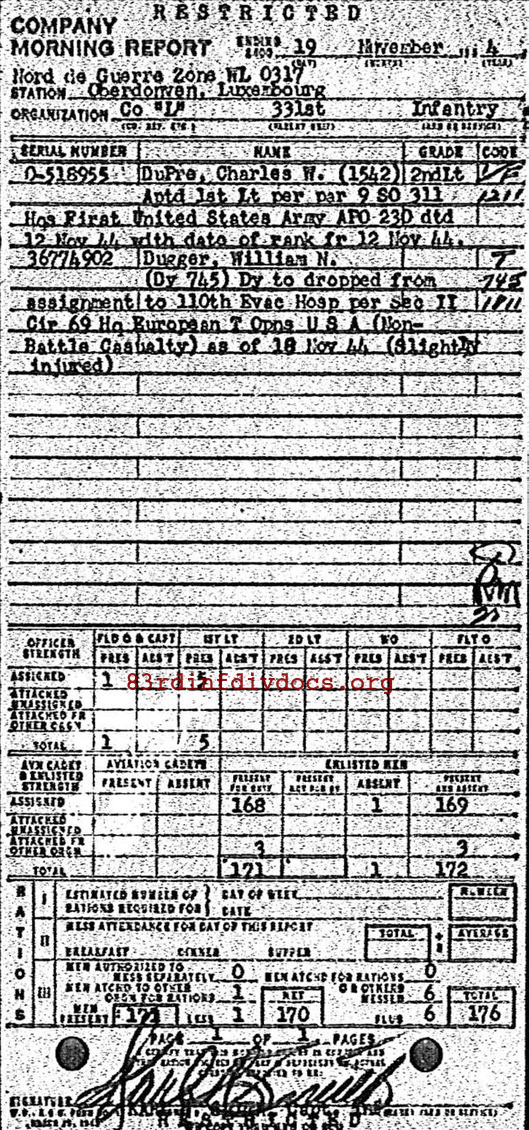 RESTRICTED
COMPANY
MORNING REPORT ENDING 19 November 4
2400 (DAY) (MONTH) (YEAR)
Nord de Guerre Zone WL 0317
STATION Oberdonven, Luxembourg
ORGANIZATION Co "L" 331st Infantry
SERIAL NUMBER NAME GRADE CODE
O-518955 DuPre, Charles W. (1542) 2ndLt
Aptd 1st Lt per par 9 SO 311
Hqs First United States Army APO 230 dtd
12 Nov 44 with date of rank fr 12 Nov 44.
36774902 Dugger, William N. T
(Dy 745) Dy to dropped from 745
assignment to 110th Evac Hosp per Sec II 1811
Cir 69 Hq European T Opns U S A (Non-
Battle Casualty) as of 18 Nov 44 (Slightly
injured)
OFFICER STRENGTH FLD O & CAPT 1ST LT 2D LT WO FLT O
PRES ABS'T PRES ABS'T PRES ABS'T PRES ABS'T PRES ABS'T
ASSIGNED 1 5
83rdinfdivdocs.org
ATTACHED UNASSIGNED
ATTACHED FR OTHER ORGN
TOTAL 1 5
AVN CADET & ENLISTED STRENGTH AVIATION CADETS ENLISTED MEN
PRESENT ABSENT PRESENT FOR DUTY PRESENT NOT FOR DY ABSENT PRESENT AND ABSENT
ASSIGNED 168 1 169
ATTACHED UNASSIGNED
ATTACHED FR OTHER ORGN 3 3
TOTAL 171 1 172
RATIONS
I ESTIMATED NUMBER OF RATIONS REQUIRED FOR DAY OF WEEK NUMBER
DATE
II MESS ATTENDANCE FOR DAY OF THIS REPORT TOTAL ÷ 3 AVERAGE
BREAKFAST DINNER SUPPER
III MEN AUTHORIZED TO MESS SEPARATELY 0 MEN ATCHD FOR RATIONS 0
MEN ATCHD TO OTHER ORGN FOR RATIONS 1 NET OR OTHERS MESSED 6 TOTAL
MEN PRESENT 171 LESS 1 170 PLUS 6 176
PAGE 1 OF 1 PAGES
SIGNATURE
RESTRICTED